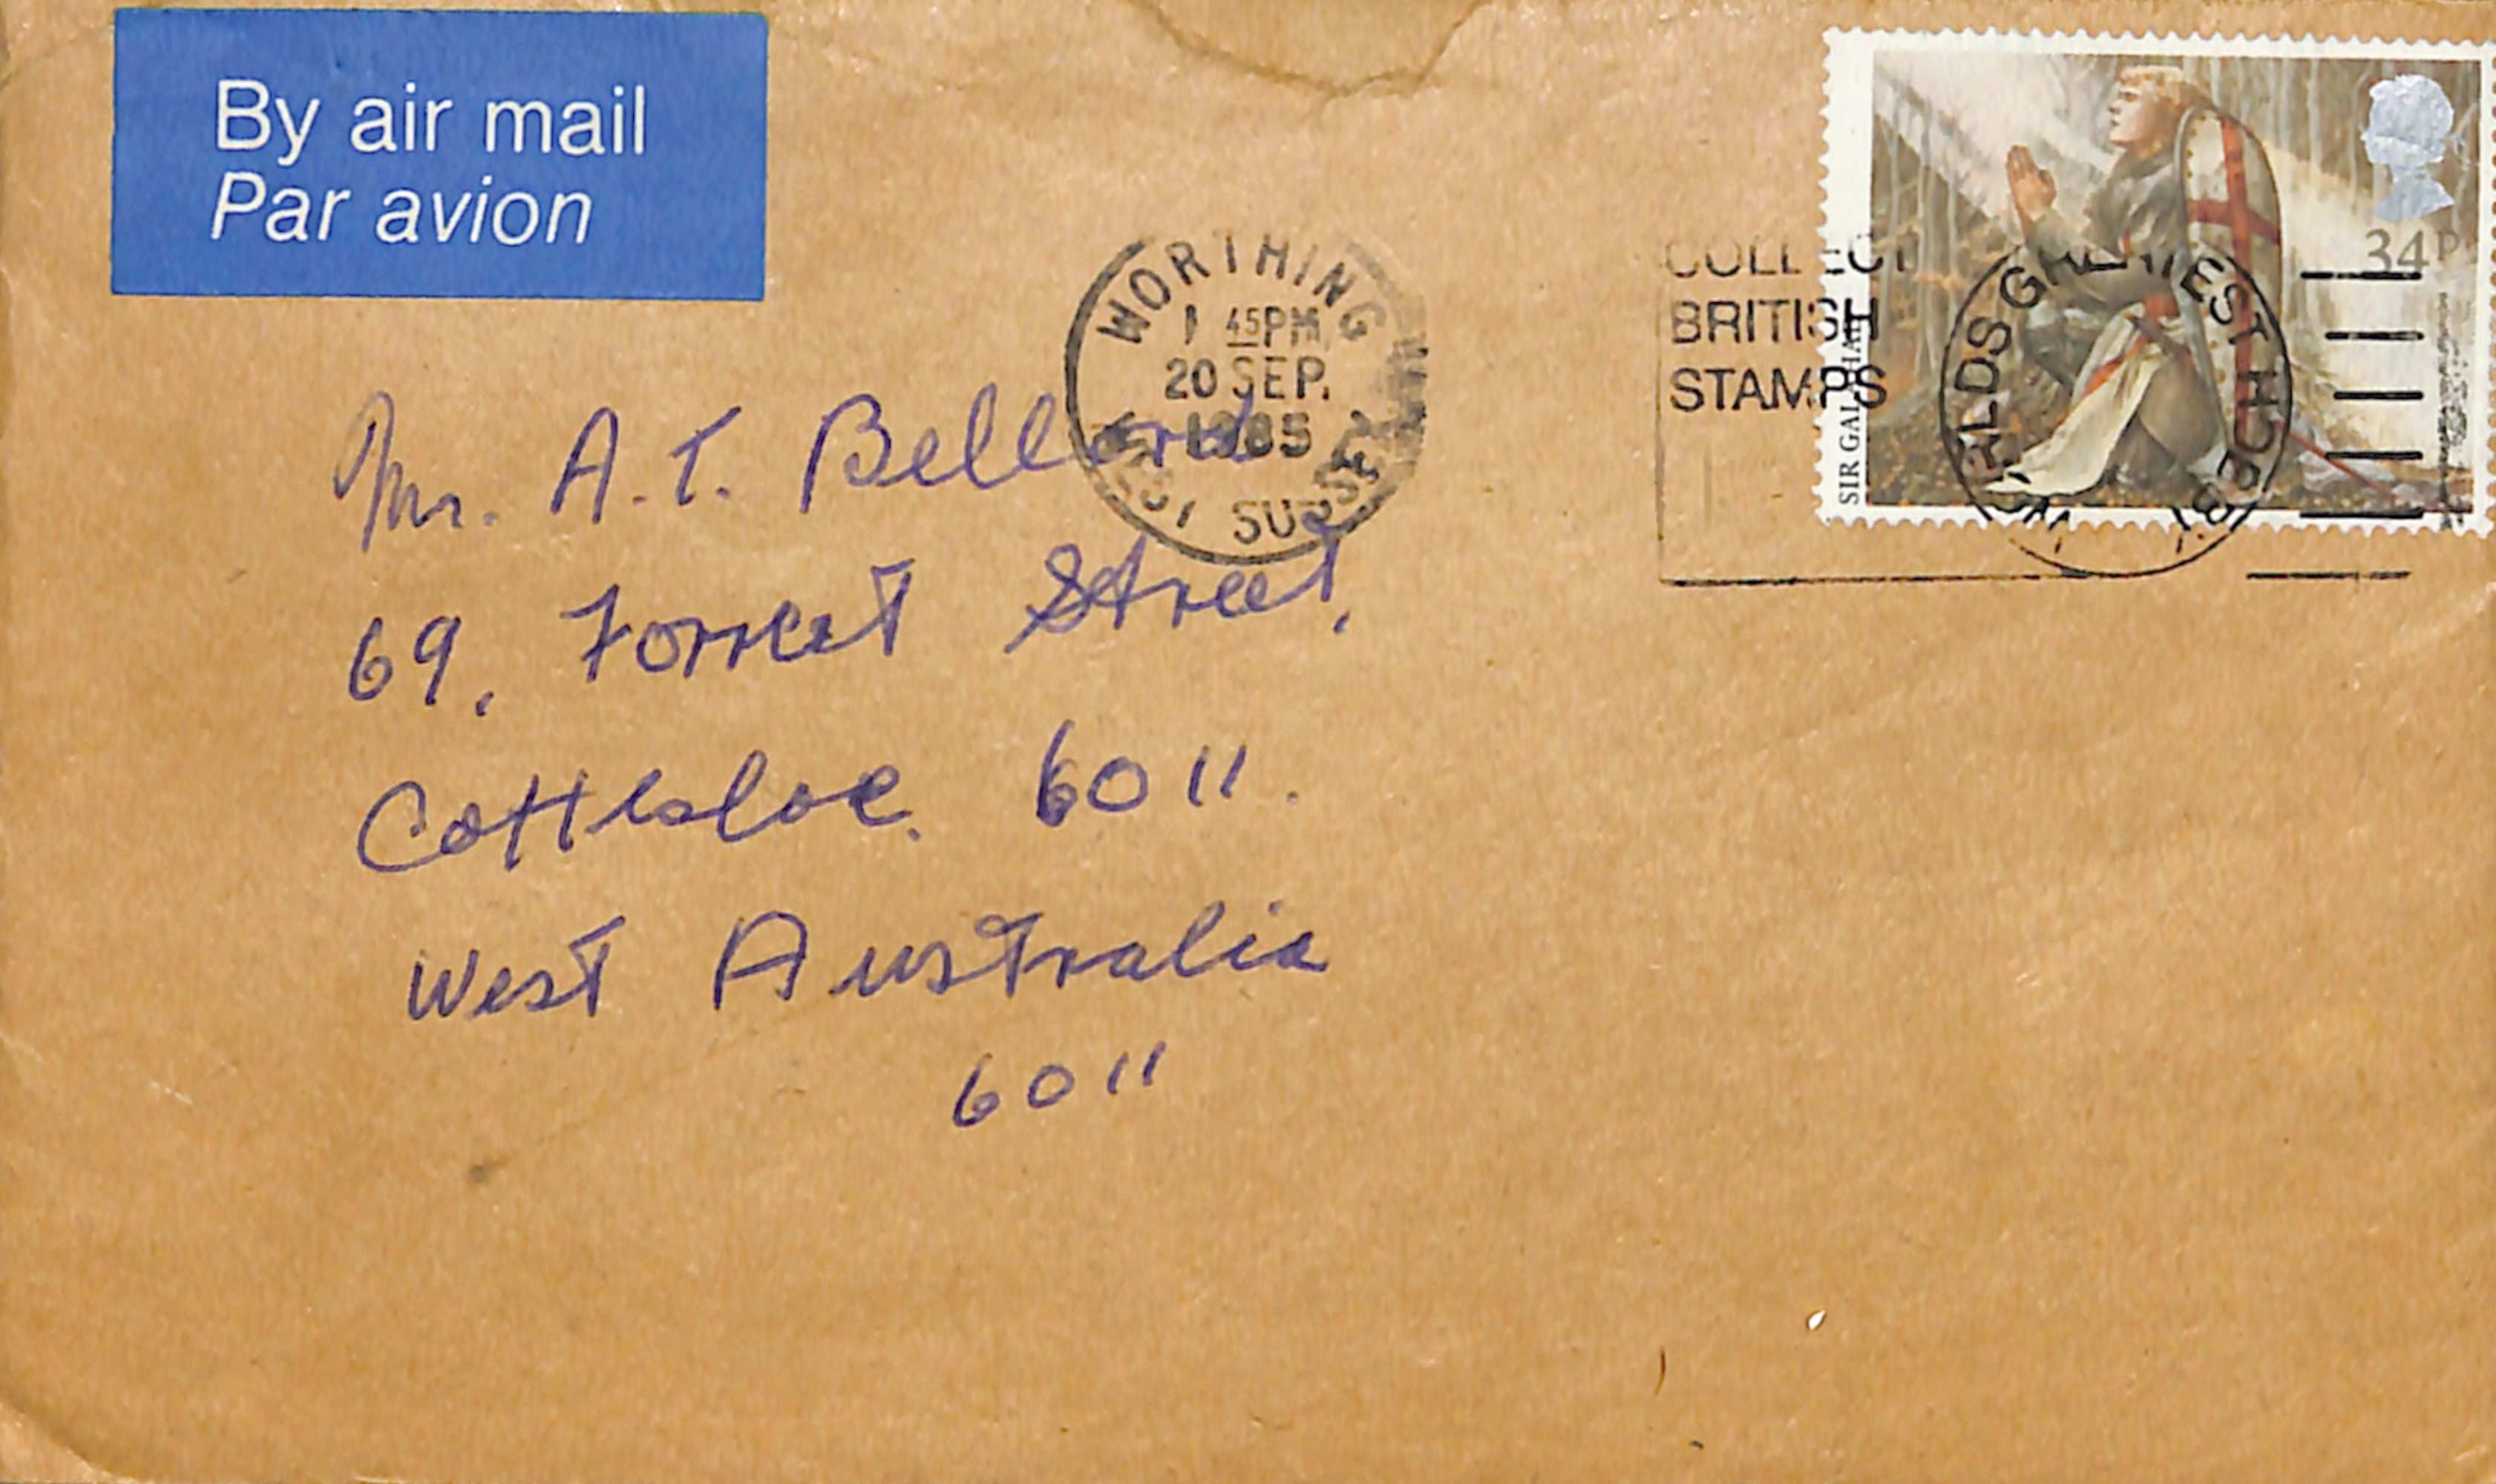 By air mail
Par avion
WORTHING
1 45PM
20 SEP.
1985
WEST SUSSEX
COLLECT
BRITISH
STAMPS
WORLDS GREATEST HOBBY
34P
SIR GALAHAD
Mr. A.T. Bellord
69, Forrest Street,
Cottesloe. 6011.
West Australia
6011